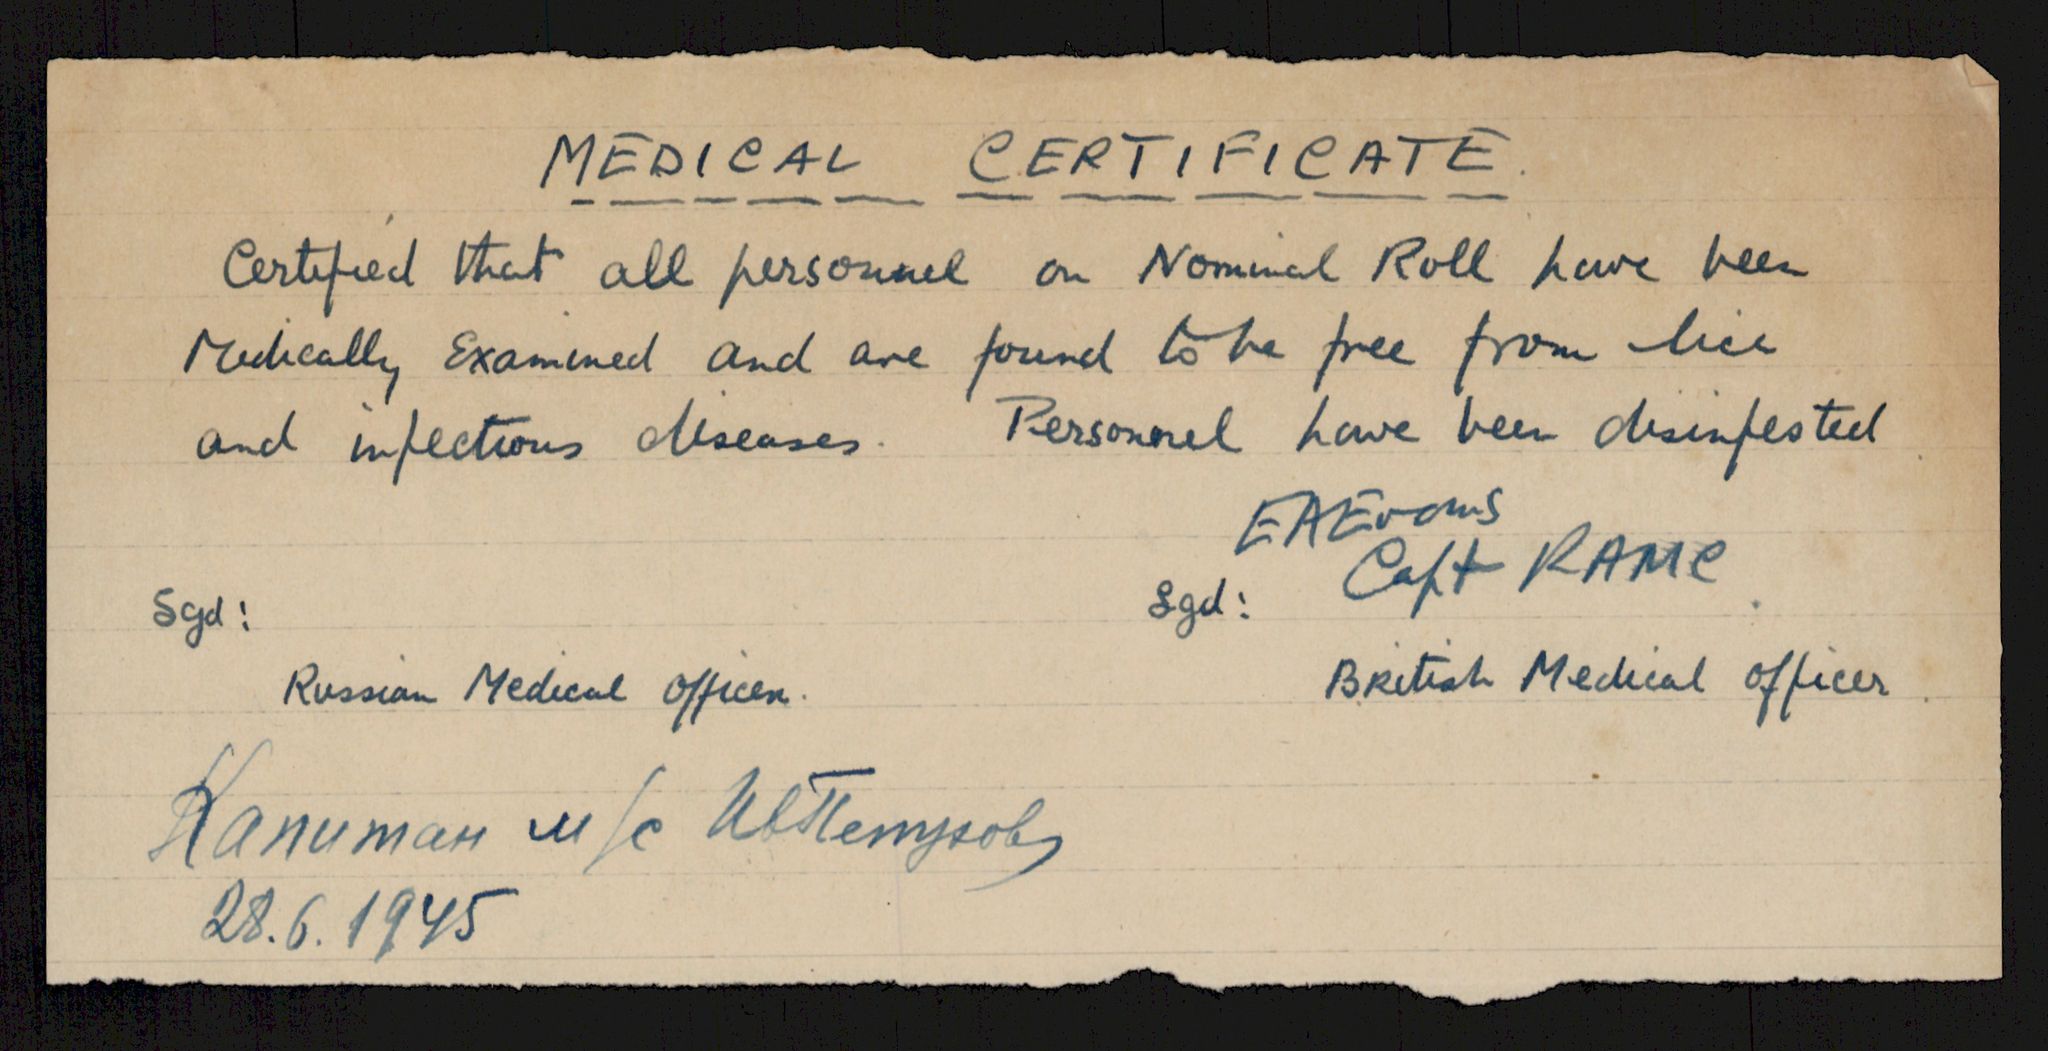 MEDICAL CERTIFICATE.
Certified that all personnel on Nominal Roll have been
Medically Examined and are found to be free from lice
and infectious diseases. Personnel have been disinfested
EAEvans
Capt RAMC
Sgd: Sgd:
Russian Medical Officer. British Medical Officer.
Капитан м/с
28.6.1945